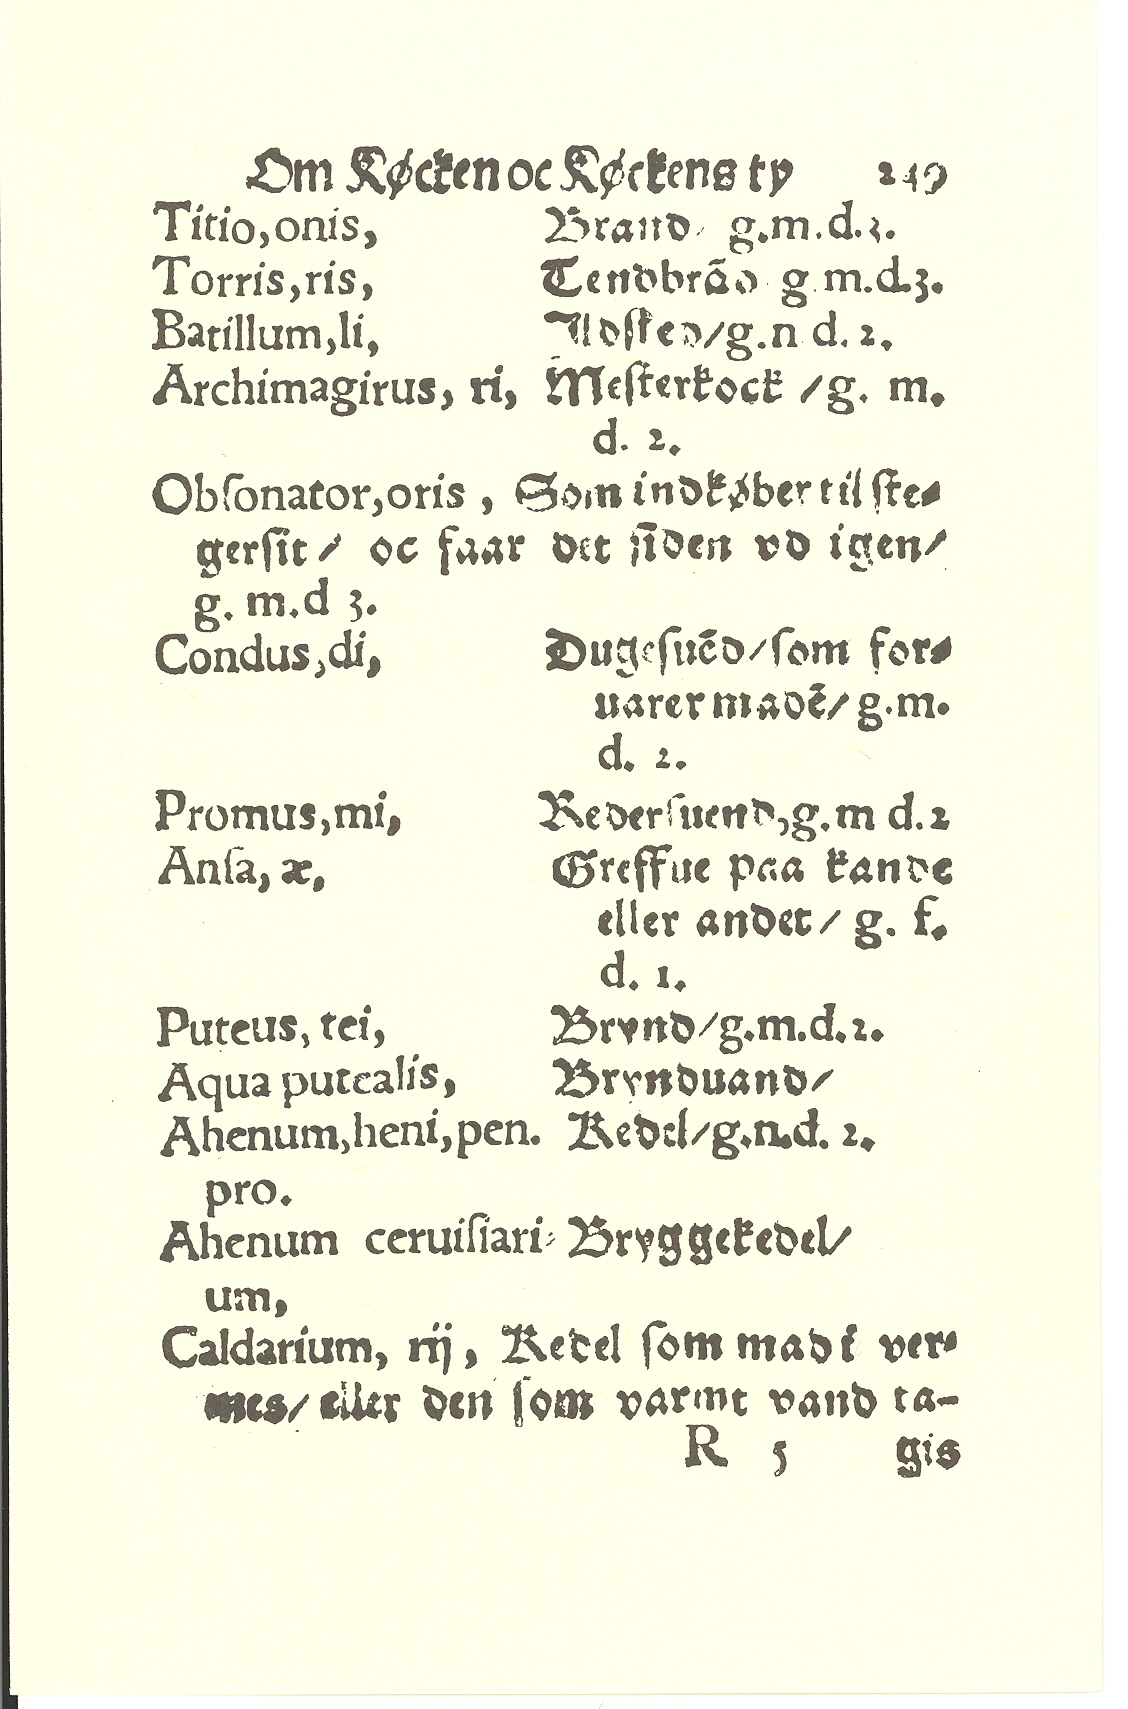 Om Køcken oc Køckens ty 249
Titio, onis, Brand/ g.m.d.3.
Torris, ris, Tendbrãd g.m.d.3.
Batillum, li, Ildſked/g.n d. 2.
Archimagirus, ri, Meſterkock /g. m.
d. 2.
Obſonator, oris , Som indkøber til ſte⸗
gerſit/ oc faar det ſiden vd igen/
g. m.d 3.
Condus, di, Dugeſuẽd/ſom for⸗
uarer madẽ/ g.m.
d. 2.
Promus, mi, Rederſuend, g.m d.2
Anſa, æ, Greffue paa kande
eller andet/ g. f.
d. 1.
Puteus, tei, Brynd/g.m.d.2.
Aqua putealis, Bryndvand/
Ahenum, heni, pen. Kedel/g.n.d. 2.
pro.
Ahenum ceruiſiari⸗ Bryggekedel/
um,
Caldarium, rij, Kedel ſom mad i ver⸗
mes/ eller den ſom varmt vand ta-
R 5 gis